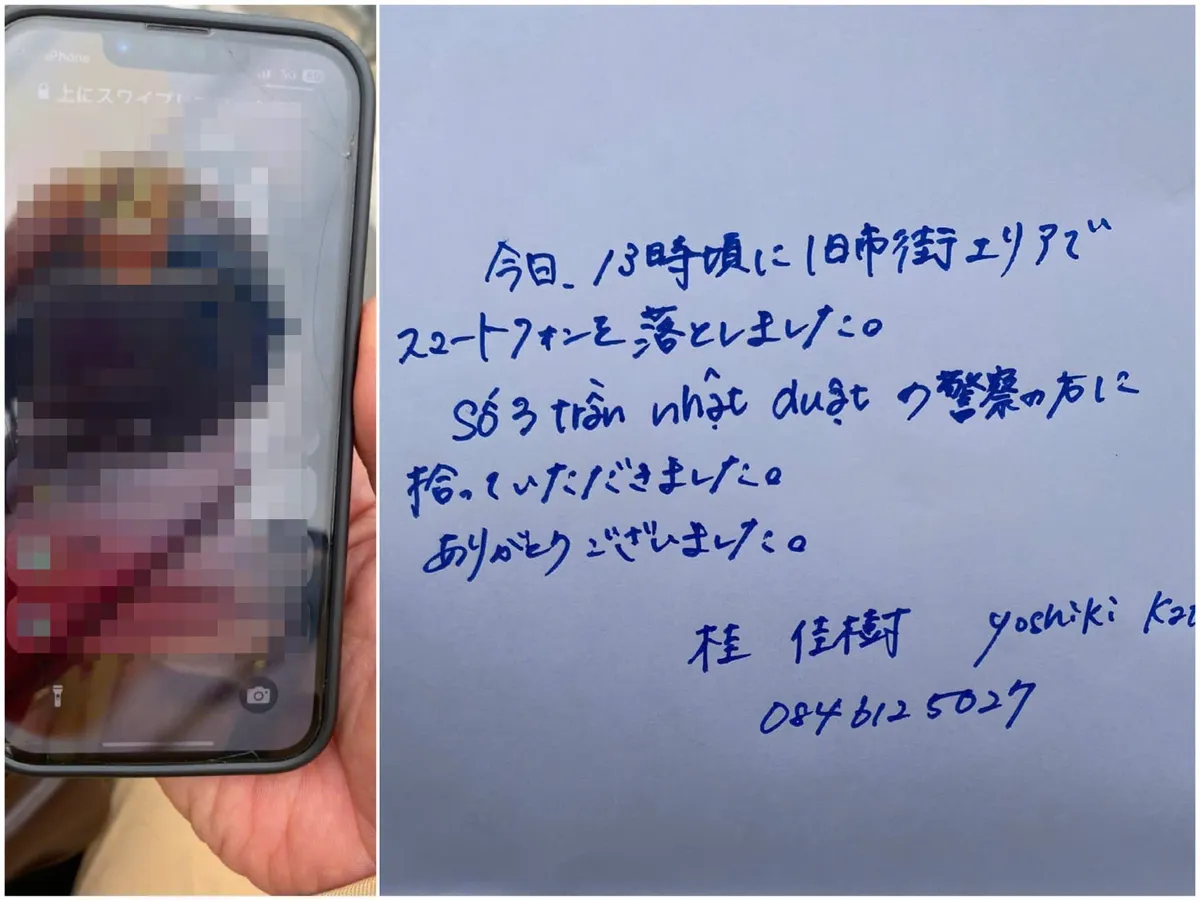 iPhone
5G 60
上にスワイプし
今日、13時頃に旧市街エリアで
スマートフォンを落としました。
Số 3 trần nhật duật の警察の方に
拾っていただきました。
ありがとうございました。
桂 佳樹 Yoshiki
0846125027